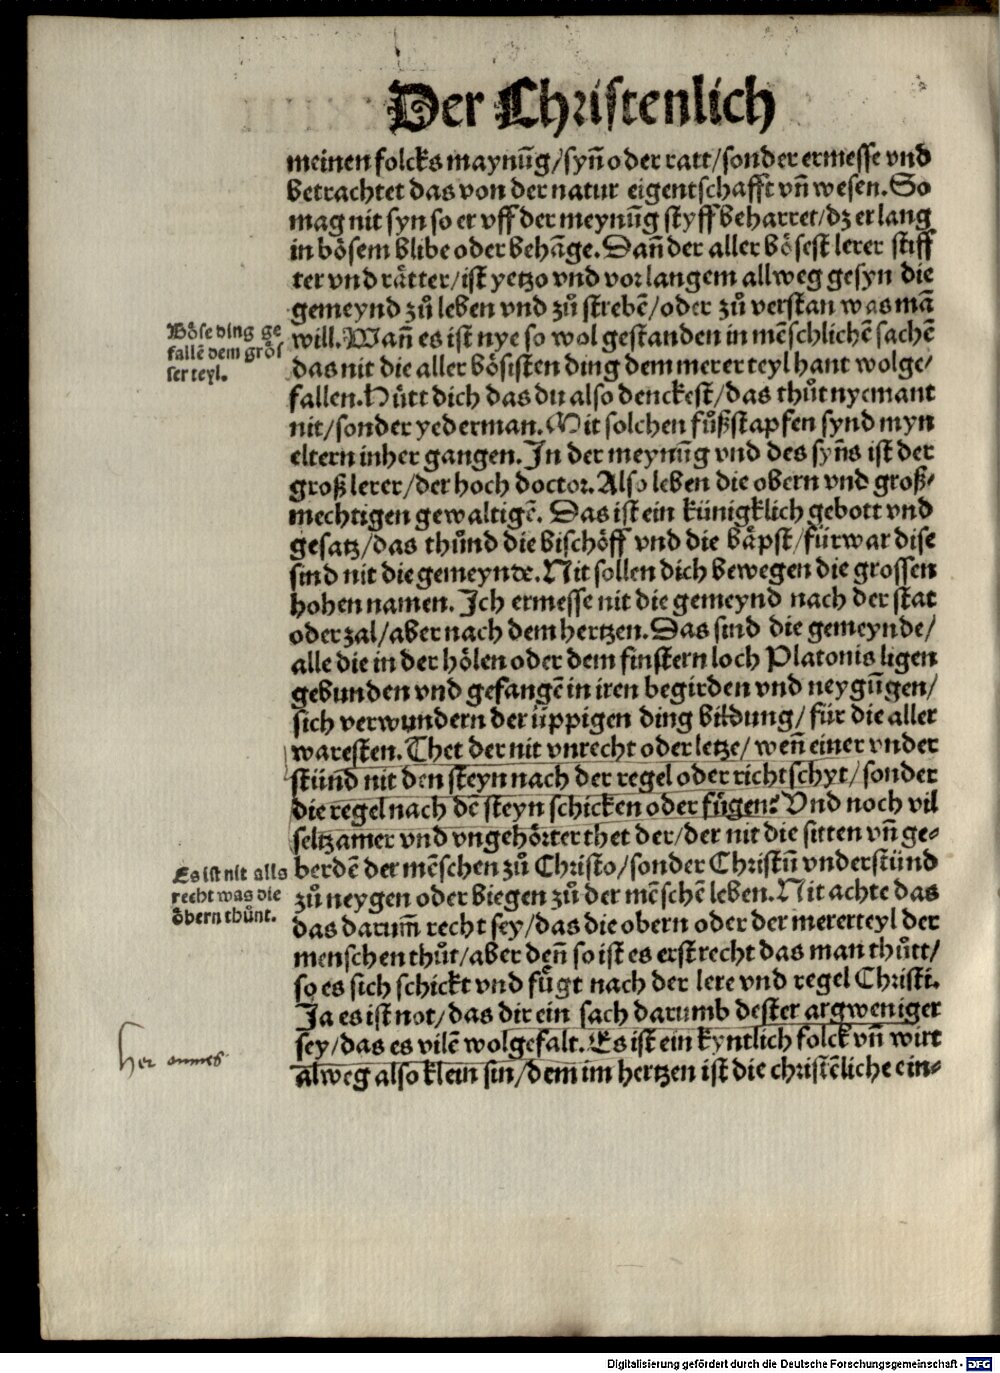 Der Christenlich
meinen folcks maynūg/syn̄ oder ratt/sonder ermesse vnd
betrachtet das von der natur eigentschafft vn̄ wesen. So
mag nit syn so er vff der meynūg styff beharret/dz er lang
in bösem blibe oder behāge. Dan̄ der aller bösest lerer stiff
ter vnd rätter/ist yetzo vnd vor langem allweg gesyn die
gemeynd zů leben vnd zů strebē/oder zů verstan was mā
Böse ding ge
fallē dem grös
ser teyl.
will. Wan̄ es ist nye so wol gestanden in mēschlichē sachē
das nit die aller bösisten ding dem merer teyl hant wolge/
fallen. Hütt dich das du also denckest/das thůt nyemant
nit/sonder yederman. Mit solchen fůßstapfen synd myn
eltern inher gangen. In der meynūg vnd des syn̄s ist der
groß lerer/der hoch doctor. Also leben die obern vnd groß/
mechtigen gewaltigē. Das ist ein künigklich gebott vnd
gesatz/das thůnd die bischöff vnd die bäpst/fürwar dise
sind nit die gemeynde. Nit sollen dich bewegen die grossen
hohen namen. Ich ermesse nit die gemeynd nach der stat
oder zal/aber nach dem hertzen. Das sind die gemeynde/
alle die in der hölen oder dem finstern loch Platonis ligen
gebunden vnd gefangē in iren begirden vnd neygūgen/
sich verwundern der üppigen ding bildung/für die aller
waresten. Thet der nit vnrecht oder letze/wen̄ einer vnder
stünd nit den steyn nach der regel oder richtschyt/sonder
die regel nach dē steyn schicken oder fügen? Vnd noch vil
seltzamer vnd vngehörter thet der/der nit die sitten vn̄ ge⸗
Es ist nit alls
recht was die
öbern thůnt.
berdē der mēschen zů Christo/sonder Christū vnderstünd
zů neygen oder biegen zů der mēschē leben. Nit achte das
das darum̄ recht sey/das die obern oder der merer teyl der
menschen thůt/aber den̄ so ist es erst recht das man thůtt/
so es sich schickt vnd fůgt nach der lere vnd regel Christi.
Ja es ist not/das dir ein sach darumb dester argweniger
sey/das es vilē wolgefalt. Es ist ein kyntlich folck vn̄ wirt
alweg also klein sin/dem im hertzen ist die christēliche ein⸗
her
Digitalisierung gefördert durch die Deutsche Forschungsgemeinschaft - DFG